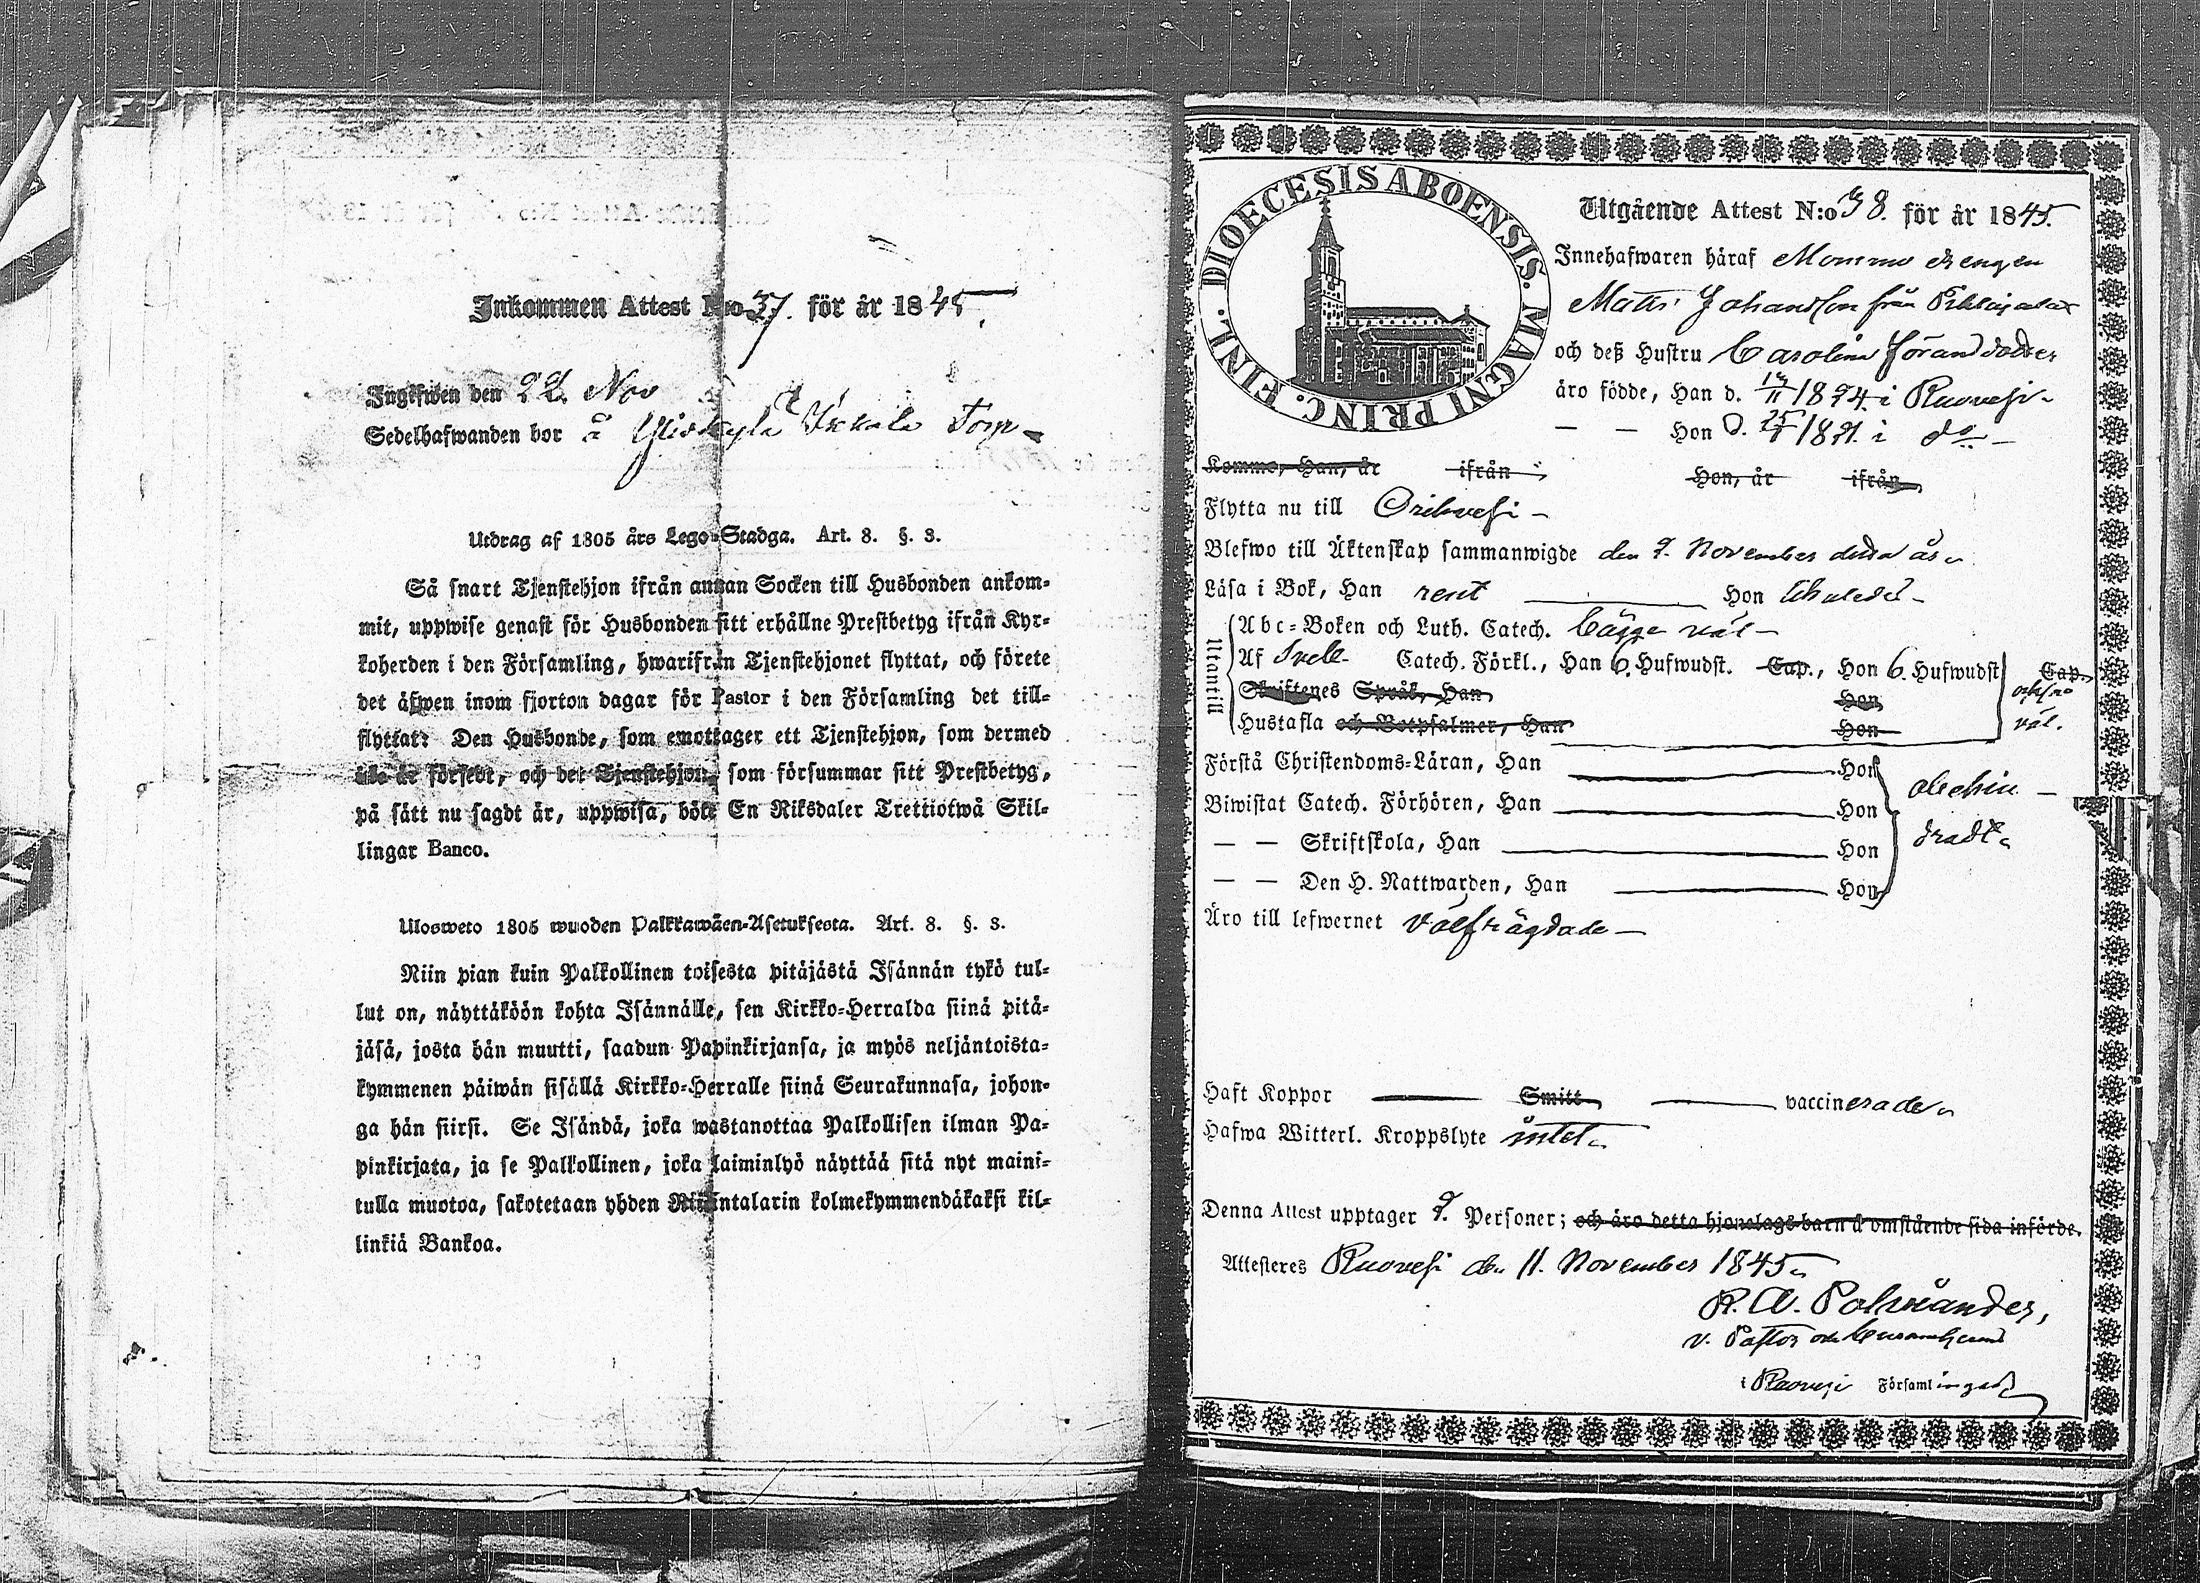 Inkommen Attest N:o 37. för år 1845.
Ingifwen den 22. Nov
Sedelhafwanden bor å Yliskylä Torp
Utdrag af 1805 års Lego-Stadga. Art. 8. §. 3.
Så snart Tjenstehjon ifrån annan Socken till Husbonden ankom-
mit, uppwise genast för Husbonden sitt erhållne Prestbetyg ifrån Kyr-
koherden i den Församling, hwarifrån Tjenstehjonet flyttat, och förete
det äfwen inom fjorton dagar för Pastor i den Församling det till-
flyttat: Den Husbonde, som emottager ett Tjenstehjon, som dermed
icke är försedt, och det Tjenstehjon, som försummar sitt Prestbetyg,
på sätt nu sagdt är, uppwisa, böte En Riksdaler Trettiotwå Skil-
lingar Banco.
Ulosweto 1805 wuoden Palkkawäen-Asetuksesta. Art. 8. §. 3.
Niin pian kuin Palkollinen toisesta pitäjästä Isännän tykö tul-
lut on, näyttäköön kohta Isännälle, sen Kirkko-Herralda siinä pitä-
jäsä, josta hän muutti, saadun Papinkirjansa, ja myös neljäntoista-
kymmenen päiwän sisällä Kirkko-Herralle siinä Seurakunnasa, johon-
ga hän siirsi. Se Isändä, joka wastanottaa Palkollisen ilman Pa-
pinkirjata, ja se Palkollinen, joka laiminlyö näyttää sitä nyt maini-
tulla muotoa, sakotetaan yhden Riksintalarin kolmekymmendäkaksi kil-
linkiä Bankoa.
DIOECESIS ABOENSIS. MAGNI PRINC. FINL.
Utgående Attest N:o 38. för år 1845.
Innehafwaren häraf Mommo drengen
Matts Johansson från
och deß Hustru Carolina
äro födde, Han d. 1824 i Ruovesi
— — Hon d. 1821. i do
Komne, Han, år ifrån Hon, år ifrån
Flytta nu till Orihvesi
Blefwo till Äktenskap sammanwigde den 9. November detta år
Läsa i Bok, Han rent Hon
Utantill
Abc-Boken och Luth. Catech. bägge väl
Af Sveb. Catech. Förkl., Han 6. Hufwudst. Cap., Hon 6. Hufwudst Cap.
Skriftenes Språk, Han Hon
Hustafla och Botpsalmer, Han Hon
väl.
Förstå Christendoms-Läran, Han Hon
Biwistat Catech. Förhören, Han Hon
— — Skriftskola, Han Hon
— — Den H. Nattwarden, Han Hon
oklandradt
Äro till lefwernet välfrägdade
Haft Koppor Smitt vaccinerade
Hafwa Witterl. Kroppslyte intet
Denna Attest upptager 2. Personer; och äro detta hjonelags barn å omstående sida införde.
Attesteres Ruovesi den 11. November 1845
v. Pastor
i Ruovesi Församlingar